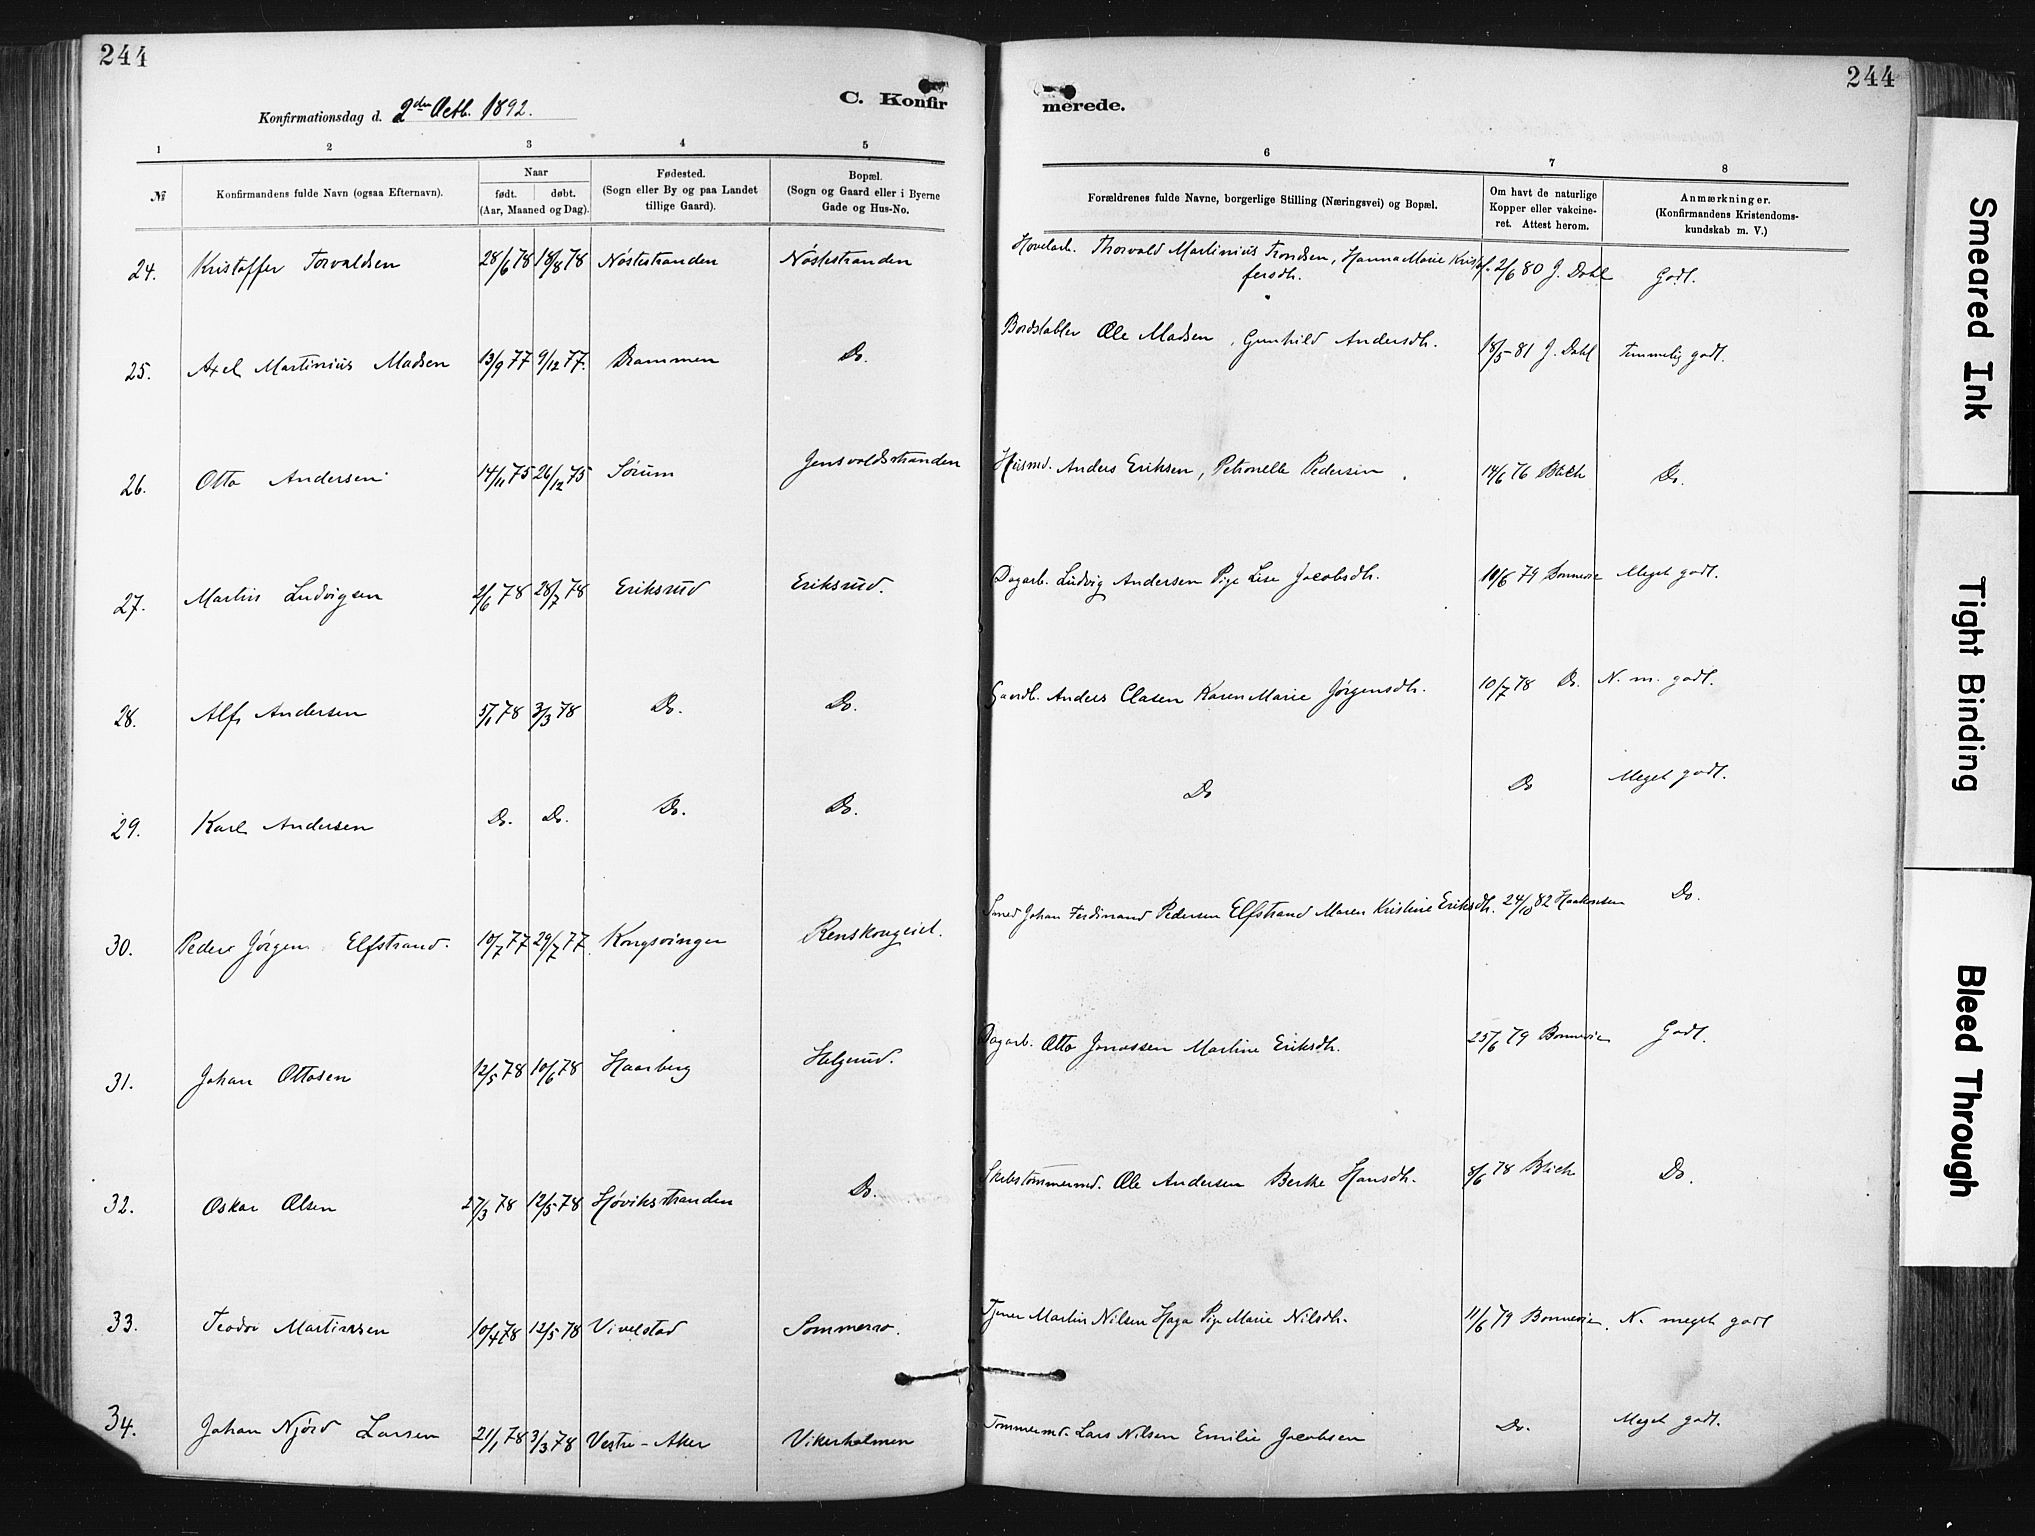 244
244
C. Konfir
merede.
Konfirmationsdag d. 2den Octb. 1892.
1 2 3 4 5 6 7 8
№ Konfirmandens fulde Navn (ogsaa Efternavn). Naar født. døbt. (Aar, Maaned og Dag). Fødested. (Sogn eller By og paa Landet tillige Gaard). Bopæl. (Sogn og Gaard eller i Byerne Gade og Hus-No. Forældrenes fulde Navne, borgerlige Stilling (Næringsvei) og Bopæl. Om havt de naturlige Kopper eller vakcineret. Attest herom. Anmærkninger. (Konfirmandens Kristendomskundskab m. V.)
24. Kristoffer Torvaldsen 28/6 78 18/8 78 Nöstestranden Nöstestranden Hovelarb. Thorvald Martinius Trondsen, Hanna Marie Kristof- 2/6 80 J. Dahl Godt.
fersdh.
25. Axel Martinius Madsen 13/9 77 9/12 77. Drammen Do. Bordstabler Ole Madsen, Gunhild Andersdh. 18/5 - 81 J. Dahl Temmelig godt.
26. Otto Andersen 14/11 75 26/12 75 Sörum Jensvoldsstranden Husmd. Anders Eriksen, Petronelle Pedersen 14/6 76 Blich Do.
27. Martin Ludvigsen 2/6 78 28/7 78 Eriksrud Eriksrud. Dagarb. Ludvig Andersen Pige Lise Jacobsdh. 10/6 79 Bonnevie Meget godt.
28. Alf Andersen 5/1 78 3/3 78 Do. Do. Gaardb. Anders Clasen Karen Marie Jørgensdh. 10/7 78 Do. N. m. godt.
29. Karl Andersen Do. Do. Do. Do. Do Do Meget godt.
30. Peder Jørgen Elfstrand. 10/7 77 29/7 77. Kongsvinger Renskougeiet. Smed Johan Ferdinand Pedersen Elfstrand Maren Kristine Eriksdh. 24/10 82 Haakensen Do.
31. Johan Ottosen 12/5 78 10/6 78 Haarberg Helgerud. Dagarb. Otto Jonassen Martine Eriksdh. 25/6 79 Bonnevie Godt.
32. Oskar Olsen 27/3 78 12/5 78 Høviksstranden Do. Skibstømmermd. Ole Andersen Berthe Hansdh. 8/6 78 Blich Do.
33. Teodor Martinsen 10/4 78 12/5 78 Vivelstad Sommerro. Tjener Martin Nilsen Haga Pige Marie Nilsdh. 11/6 79 Bonnevie. N. meget godt
34. Johan Njörd Larsen 21/1 78 3/3 78 Vestre-Aker Vikerholmen Tømmermd. Lars Nilsen Emilie Jacobsen Do. Meget godt.
Smeared Ink
Tight Binding
Bleed Through